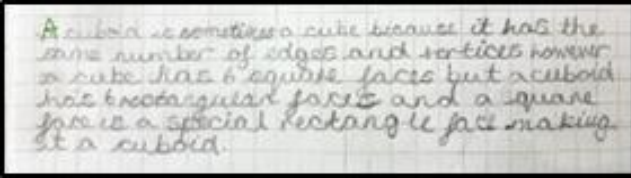 A cuboid is sometimes a cube because it has the
same number of edges and vertices however
a cube has 6 square faces but a cuboid
has 6 rectangular faces and a square
face is a special rectangle face making
it a cuboid.